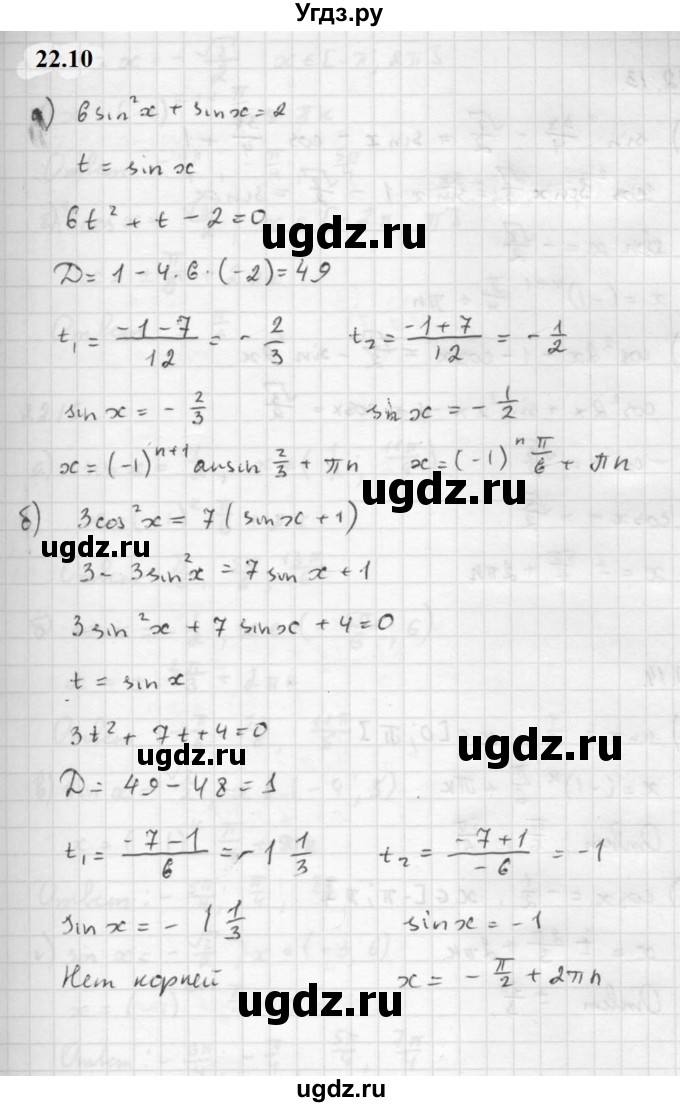 Угдз.ру
22.10
а) 6 sin²x + sin x = 2
t = sin x
6t² + t − 2 = 0
ugdz.ru
D = 1 − 4·6·(−2) = 49
t₁ = (−1−7)/12 = −2/3   t₂ = (−1+7)/12 = −1/2
ugdz.ru
sin x = −2/3   sin x = −1/2
x = (−1)ⁿ⁺¹ arcsin 2/3 + πn   x = (−1)ⁿ π/6 + πn
ugdz.ru
б) 3cos²x = 7(sin x + 1)
ugdz.ru
3 − 3sin²x = 7 sin x + 1
3 sin²x + 7 sin x + 4 = 0
ugdz.ru
t = sin x
3t² + 7t + 4 = 0
ugdz.ru
ugdz.ru
D = 49 − 48 = 1
t₁ = (−7−1)/6 = −1 1/3   t₂ = (−7+1)/−6 = −1
ugdz.ru
sin x = −1 1/3   sin x = −1
Нет корней   x = −π/2 + 2πn
ugdz.ru
ugdz.ru